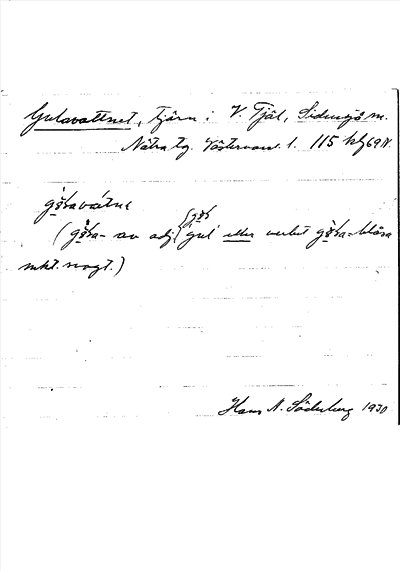 Gulavattnet, tjärn i V. Tjäl, Sidensjö sn.
Nätra tg. Västern l. 115 kbf 69 N.
göLavátne
göL
(göLa- av adj. gul eller verbet göLa = blåsa
mkt. nogt.)
Hans A. Söderberg 1930